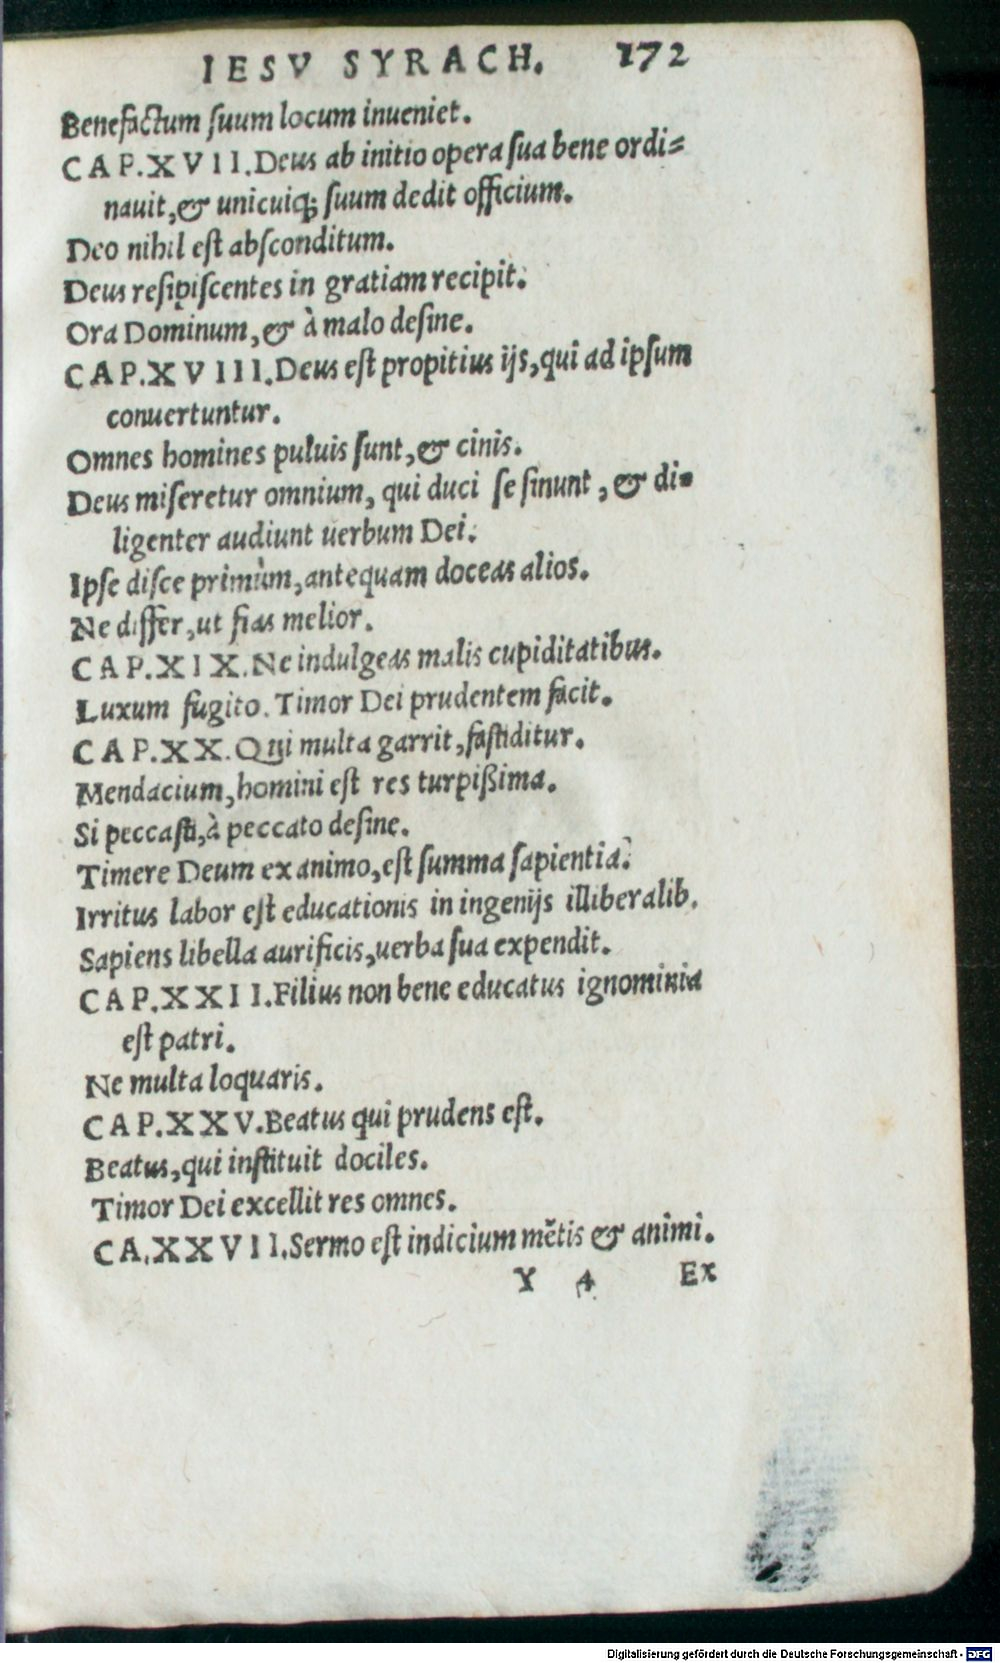 IESV SYRACH. 172
Benefactum ſuum locum inueniet.
CAP.XVII.Deus ab initio opera ſua bene ordi=
nauit,& unicuiq; ſuum dedit officium.
Deo nihil eſt abſconditum.
Deus reſipiſcentes in gratiam recipit.
Ora Dominum,& à malo deſine.
CAP.XVIII.Deus eſt propitius ijs,qui ad ipſum
conuertuntur.
Omnes homines puluis ſunt,& cinis.
Deus miſeretur omnium, qui duci ſe ſinunt, & di=
ligenter audiunt uerbum Dei.
Ipſe diſce primùm,antequam doceas alios.
Ne differ,ut fias melior.
CAP.XIX.Ne indulgeas malis cupiditatibus.
Luxum fugito.Timor Dei prudentem facit.
CAP.XX.Qui multa garrit,faſtiditur.
Mendacium,homini eſt res turpißima.
Si peccaſti,à peccato deſine.
Timere Deum ex animo,eſt ſumma ſapientia.
Irritus labor eſt educationis in ingenijs illiberalib.
Sapiens libella aurificis,uerba ſua expendit.
CAP.XXII.Filius non bene educatus ignominia
eſt patri.
Ne multa loquaris.
CAP.XXV.Beatus qui prudens eſt.
Beatus,qui inſtituit dociles.
Timor Dei excellit res omnes.
CA.XXVII.Sermo eſt indicium mẽtis & animi.
Y 4 Ex
Digitalisierung gefördert durch die Deutsche Forschungsgemeinschaft - DFG